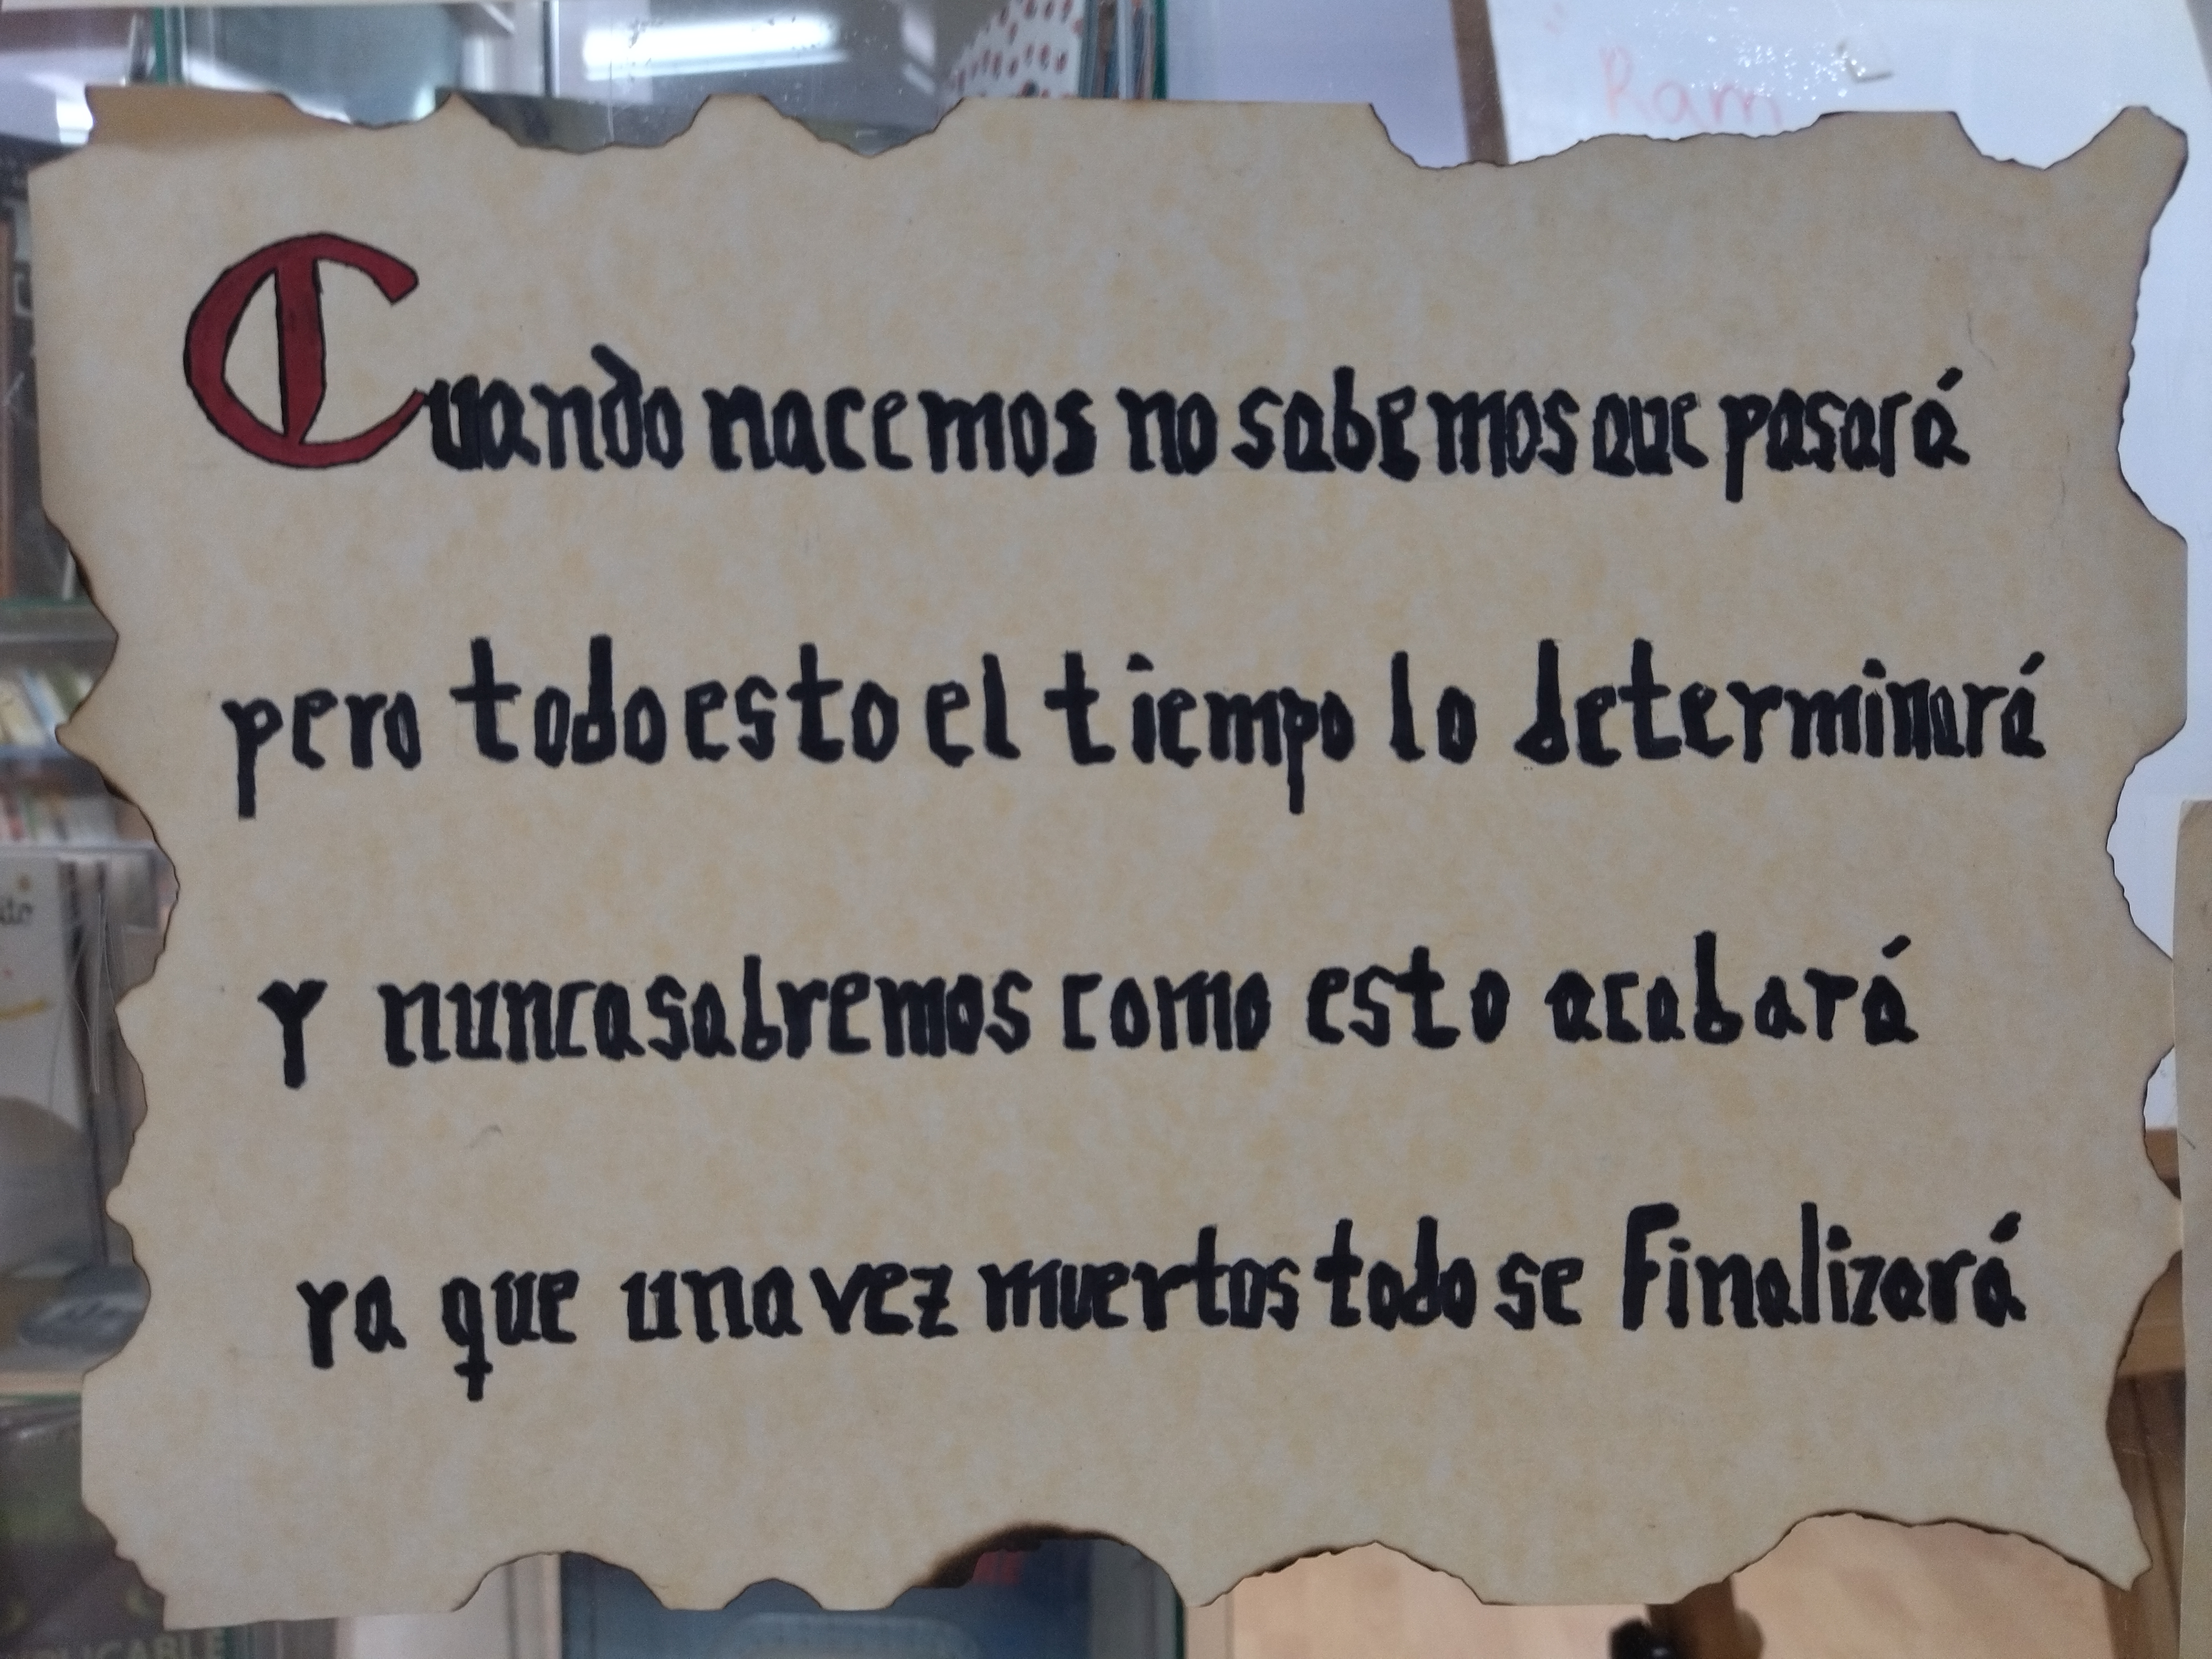 Ram
Cuando nacemos no sabemos que pasará
pero todo esto el tiempo lo determinará
y nunca sabremos como esto acabará
ya que una vez muertos todo se finalizará